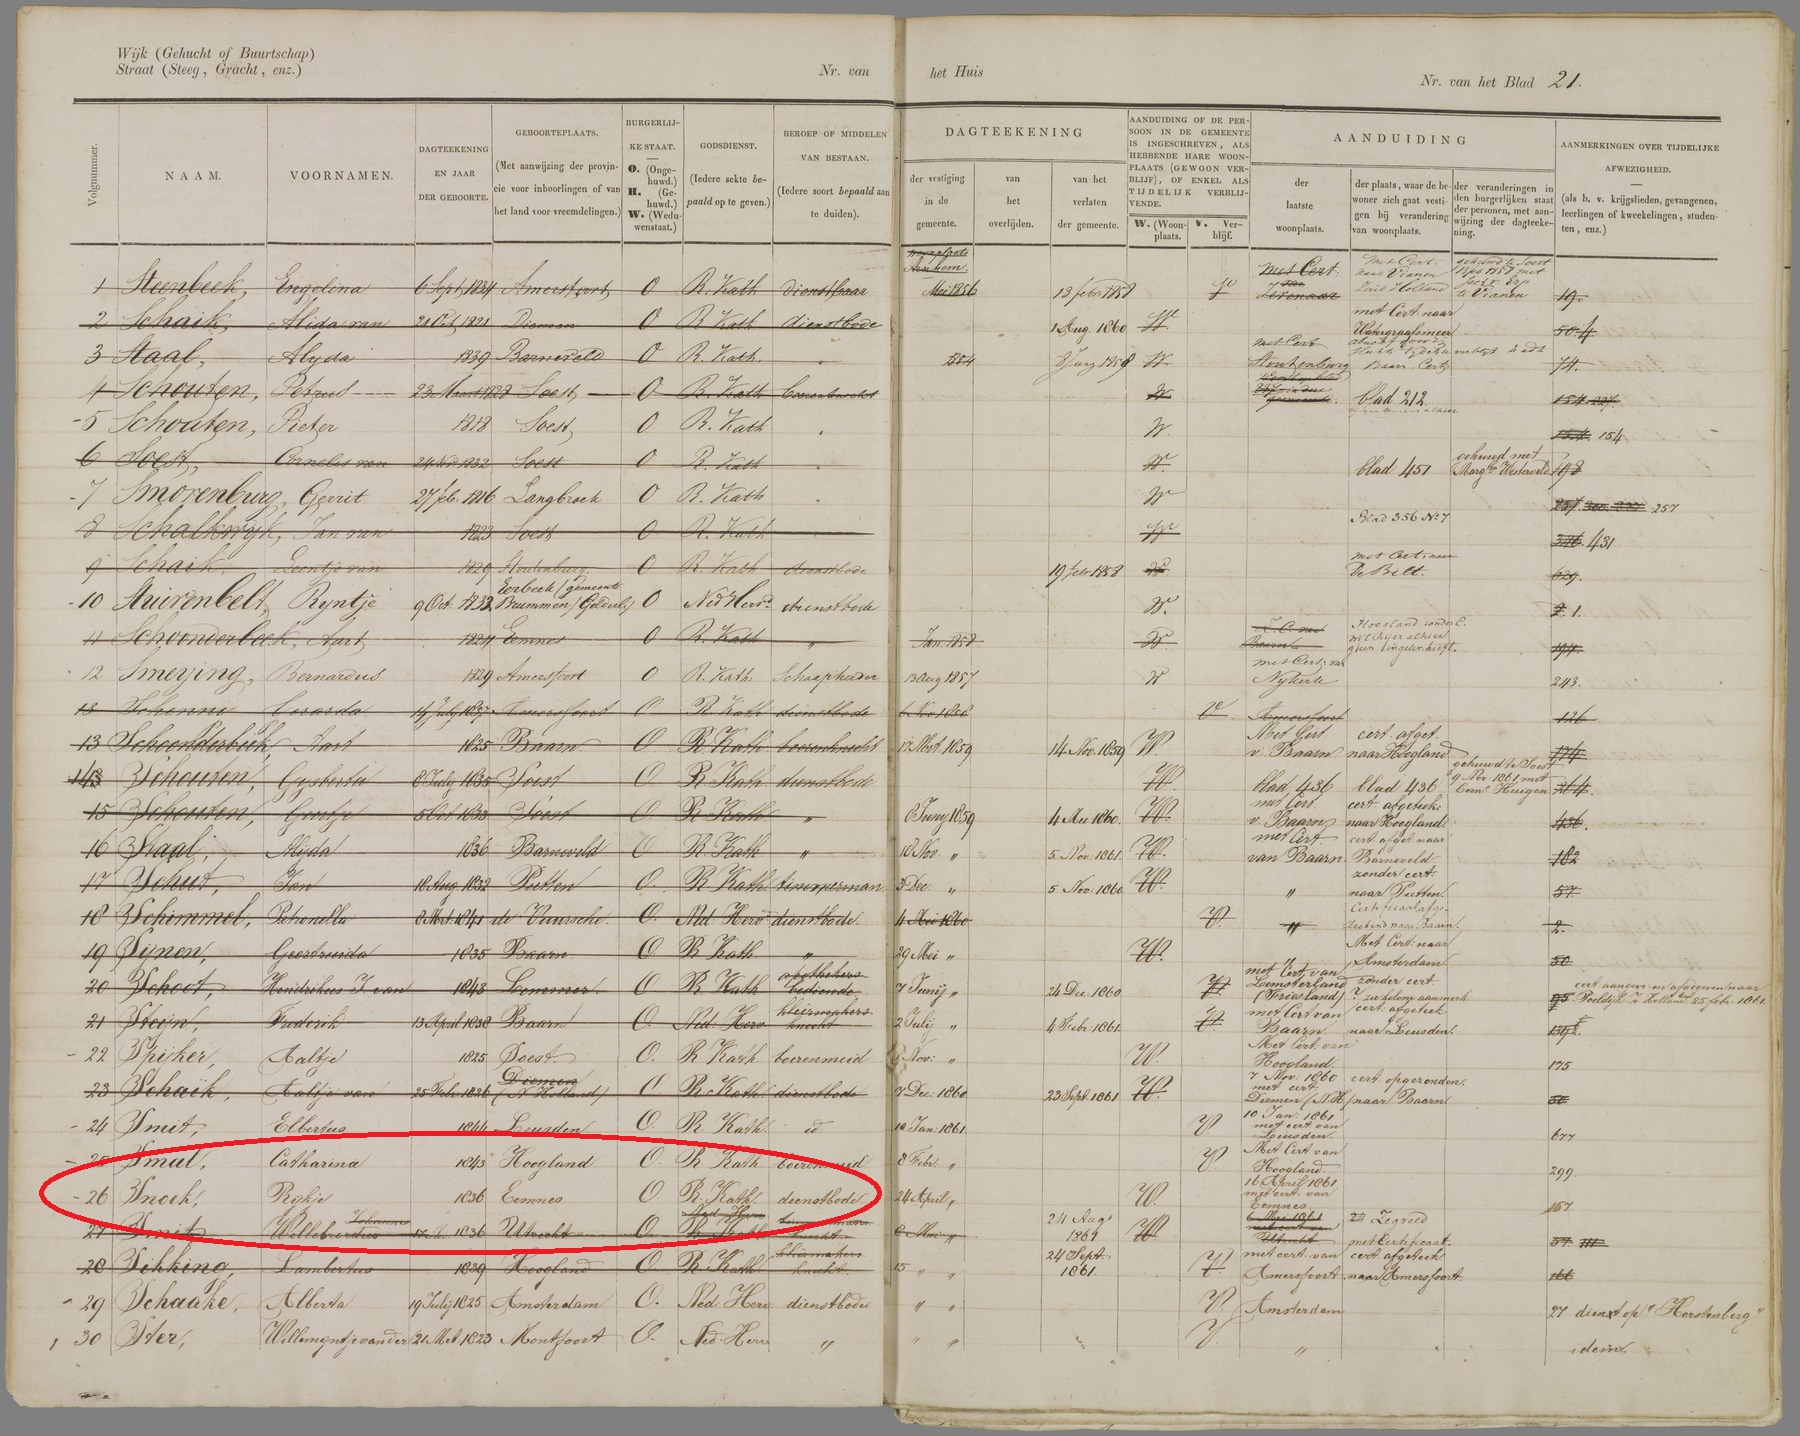 Wijk (Gehucht of Buurtschap)
Straat (Steeg, Gracht, enz.)
Nr. van het Huis
Nr. van het Blad 21.
Volgnummer. NAAM. VOORNAMEN. DAGTEEKENING EN JAAR DER GEBOORTE. GEBOORTEPLAATS. (Met aanwijzing der provincie voor inboorlingen of van het land voor vreemdelingen.) BURGERLIJKE STAAT. O. (Ongehuwd.) H. (Gehuwd.) W. (Weduwenstaat.) GODSDIENST. (Iedere sekte bepaald op te geven.) BEROEP OF MIDDELEN VAN BESTAAN. (Iedere soort bepaald aan te duiden).
DAGTEEKENING der vestiging in de gemeente. van het overlijden. van het verlaten der gemeente.
AANDUIDING OF DE PERSOON IN DE GEMEENTE IS INGESCHREVEN, ALS HEBBENDE HARE WOONPLAATS (GEWOON VERBLIJF), OF ENKEL ALS TIJDELIJK VERBLIJVENDE. W. (Woonplaats. V. Verblijf.
AANDUIDING der laatste woonplaats. der plaats, waar de bewoner zich gaat vestigen bij verandering van woonplaats. der veranderingen in den burgerlijken staat der personen, met aanwijzing der dagteekening.
AANMERKINGEN OVER TIJDELIJKE AFWEZIGHEID. (als b. v. krijgslieden, gevangenen, leerlingen of kweekelingen, studenten, enz.)
1 Steenbeek, Engelina 6 Sept 1834 Amersfoort O R. Kath Arnhem. Mei 1856 13 febr 1858 met Cert. naar Vianen Zuid Holland te Vianen 19.
2 Schaik, Alida van Diemen O R. Kath dienstbode 1 Aug. 1860 W met Cert. naar Watergraafsmeer
3 Staal, Alyda 1839 Barneveld O R. Kath. W. Stoutenburg 74.
4 Schouten, Petrus Soest O R. Kath W blad 212
5 Schouten, Pieter 1818 Soest O R. Kath W. 154
6 Soest, Cornelis van 1832 Soest O R. Kath W. blad 451 gehuwd met Westerveld 198
7 Smorenburg, Gerrit 27 feb. 1816 Langbroek O R. Kath W 257
8 Schalkwijk, Jan van 1823 Soest O R. Kath W Blad 356 No 7 431
9 Schaik, van 1829 Stoutenburg. O R. Kath dienstbode 19 febr 1858 W met Cert. naar De Bilt.
10 Stuivenbelt, Ryntje 9 Oct. 1832 Eerbeek (gemeente Brummen) O Ned Herv. dienstbode W. 1.
11 Schoonderbeek, Aart 1824 Eemnes O R. Kath " Jan. 1858 W 194.
12 Smeying, Bernardus 1829 Amersfoort O R. Kath. Schaapherder 13 Aug 1857 W met Cert. van Nykerk 243.
13 Gerarda Amersfoort O R Kath dienstbode V Amersfoort 126
13 Schoonderbeek, Aart 1825 Baarn O R Kath boerenknecht 17 Mrt. 1859 14 Nov. 1859 W. Met Cert. v. Baarn cert. afget. naar Hoogland 174
14 Schouten, Gysberta 8 July 1835 Soest O. R Kath dienstbode W. blad 436 blad 436 gehuwd te Soest 9 Nov 1861 met Huigen 264.
15 Schouten, Geertje 5 Oct 1833 Soest O R Kath " 8 Juny 1859 1860. W. met Cert. v. Baarn cert. afgeteek. naar Hoogland. 436.
16 Staal, Alyda 1836 Barneveld O R Kath " 18 Nov. " 5 Nov. 1861. W. met Cert. van Baarn cert. afget naar Barneveld 182
17 Schut, Jan 18 Aug 1832 Putten O. R Kath timmerman 3 Dec. " 5 Nov. 1860. W. " zonder cert. naar Putten 57.
18 Schimmel, Petronella 8 Mrt. 1841 de Vuursche O. Ned Herv dienstbode. 4 Mei 1860 V. " naar Baarn. 2.
19 Synen, Geertruida 1835 Baarn O R Kath " 29 Mei " W. " Met Cert. naar Amsterdam 50
20 Schoot, Hendrikus J. van 1843 Lemmer O R Kath apothekers bediende 7 Junij " 24 Dec. 1860 V. met Cert. van Lemsterland (Friesland) zonder cert. 95
21 Steijn, Frederik 13 April 1838 Baarn O Ned. Herv kleermakers knecht 2 Julij " 4 Febr. 1861. V. met Cert van Baarn. cert. afgeteek naar Leusden.
22 Spijker, Aaltje 1825 Soest O. R Kath boerenmeid Nov: " W. Met Cert. van Hoogland. 175
23 Schaik, Aaltje van 25 Feb. 1836 Diemen (N. Holland) O. R. Kath dienstbode 7 Dec. 1860. 23 Sept 1861 W. 7 Nov: 1860 met cert: Diemen (N.H.) cert opgezonden. naar Baarn 50
24 Smit, Elbertus 1844 Leusden O R Kath id. 10 Jan: 1861. V 10 Jan. 1861 met cert van Leusden. 677
25 Smul, Catharina 1843 Hoogland O. R Kath boerenmeid 8 Febr. " V. Met Cert van Hoogland. 299.
26 Snoek, Rijkje 1836 Eemnes O R. Kath dienstbode 24 April, W. 16 April 1861 met cert: van Eemnes 167
27 Smit Willebrordus Johannes 1836 Utrecht O. R. Kath Ned. Herv knecht 24 Aug 1861 W 6 Mei 1861 met cert van Utrecht Zegveld met Certificaat. 57.
28 Sikking, Lambertus 1839 Hoogland O. R. Kath kleermakers knecht. 15 " " 24 Sept 1861. V. met cert. van Amersfoort cert afgeteek naar Amersfoort 166
29 Schaake, Alberta 19 Julij 1825 Amsterdam O. Ned. Herv dienstbode " " V. Amsterdam 27 dienst op "Horstenberg"
30 Ster, Willemyntje van der 21 Mrt. 1823 Montfoort O. Ned. Herv " " " V. " idem.